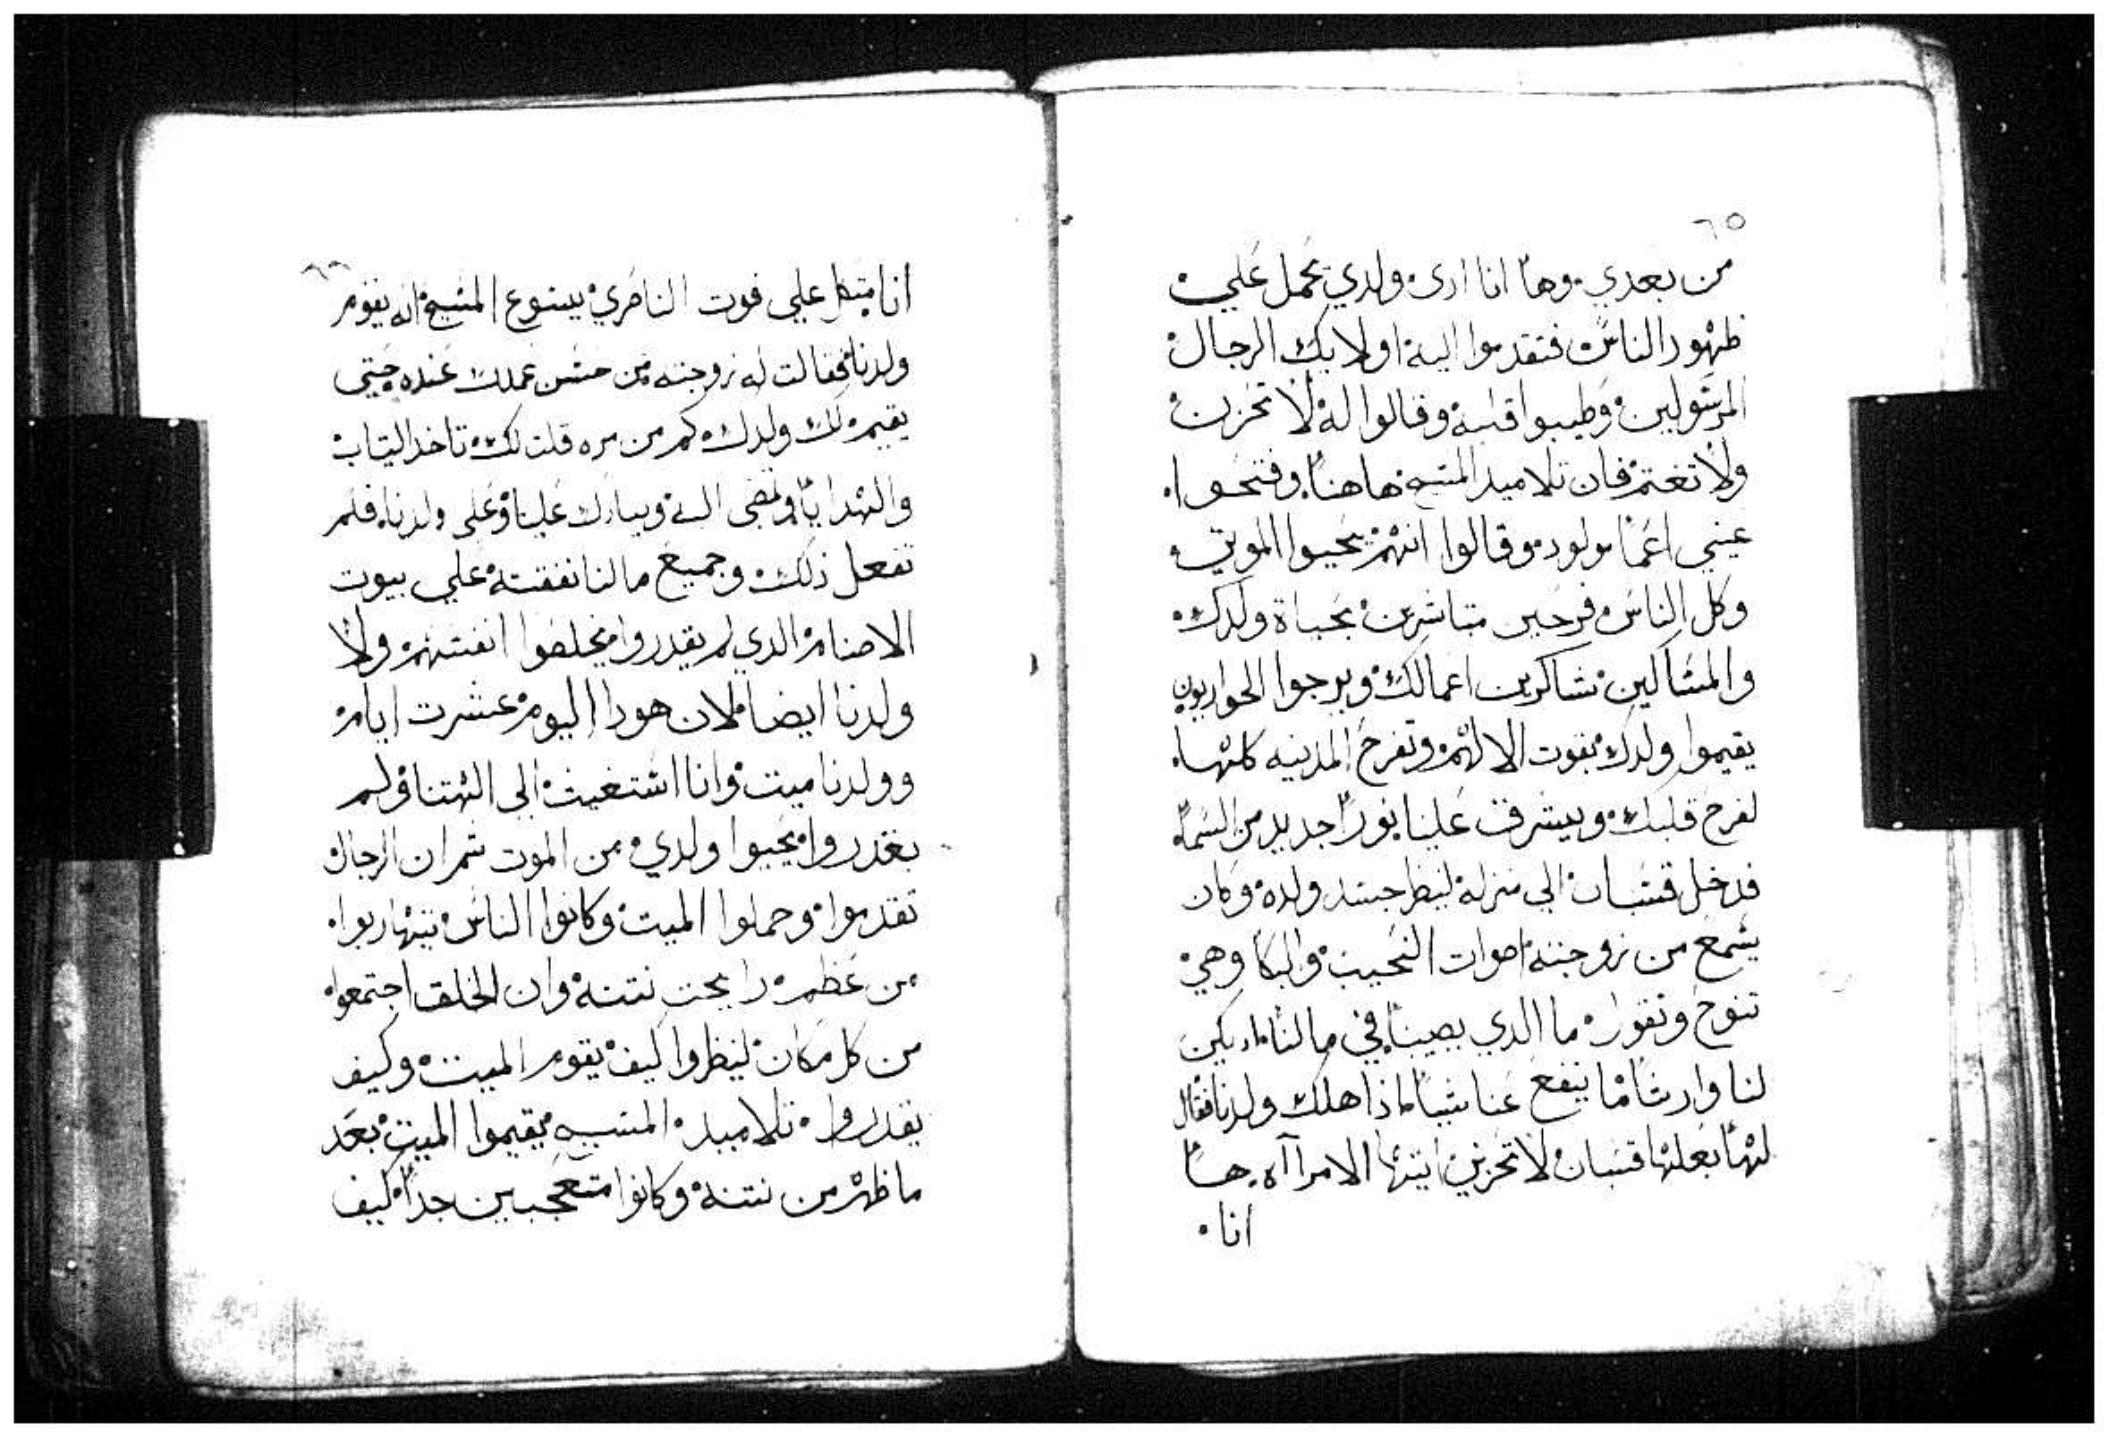 ٦٥
من بعدي وها انا ارى ولدي يحمل علي
ظهور الناس فتقدموا اليه اولايك الرجال
المرسولين وطيبوا قلبه وقالوا له لا تحزن
ولا تغتم فان تلاميد المسيح هاهنا وفتحوا
عيني اعما مولود وقالوا انهم يحيوا الموتي
وكل الناس فرحين متباشرين بحياة ولدك
والمساكين شاكرين اعمالك ويرجوا الحواريون
يقيموا ولدك بقوت الالهم وتفرح المدينه كلها
لفرح قلبك ويشرق علينا نورا جديد من السماء
فدخل قسبان الي منزله لينظر جسد ولده وكان
يسمع من زوجته اصوات النحيب والبكا وهي
تنوح وتقول ما الدي يصيبنا في مالنا يكن
لنا وارثا ما ينفع عنا شيا لماذا هلك ولدنا فقال
لها بعلها قسبان لا تحزني ايتها الامراآه ها
انا
٦٦
انا متكل علي قوت الناصري يسوع المسيح انه يقوم
ولدنا فقالت له زوجته من حسن عملك عنده حتى
يقيم لك ولدك كم من مره قلت لك تاخد التياب
والهدايا وتمضى اليه ويبارك علينا وعلى ولدنا فلم
تفعل ذلك وجميع مالنا نفقته علي بيوت
الاصنام الدي لم يقدروا يخلصوا انفسهم ولا
ولدنا ايضا لان هودا اليوم عشرت ايام
وولدنا ميت وانا استغيث الي الهتنا ولم
يقدروا يحيوا ولدي من الموت ثم ان الرجال
تقدموا وحملوا الميت وكانوا الناس يتهاربوا
من عظم رايحت نتنه وان الخلق اجتمعوا
من كل مكان لينظروا كيف يقوم الميت وكيف
يقدروا تلاميد المسيح يقيموا الميت بعد
ما ظهر من نتنه وكانوا متعجبين جدا كيف